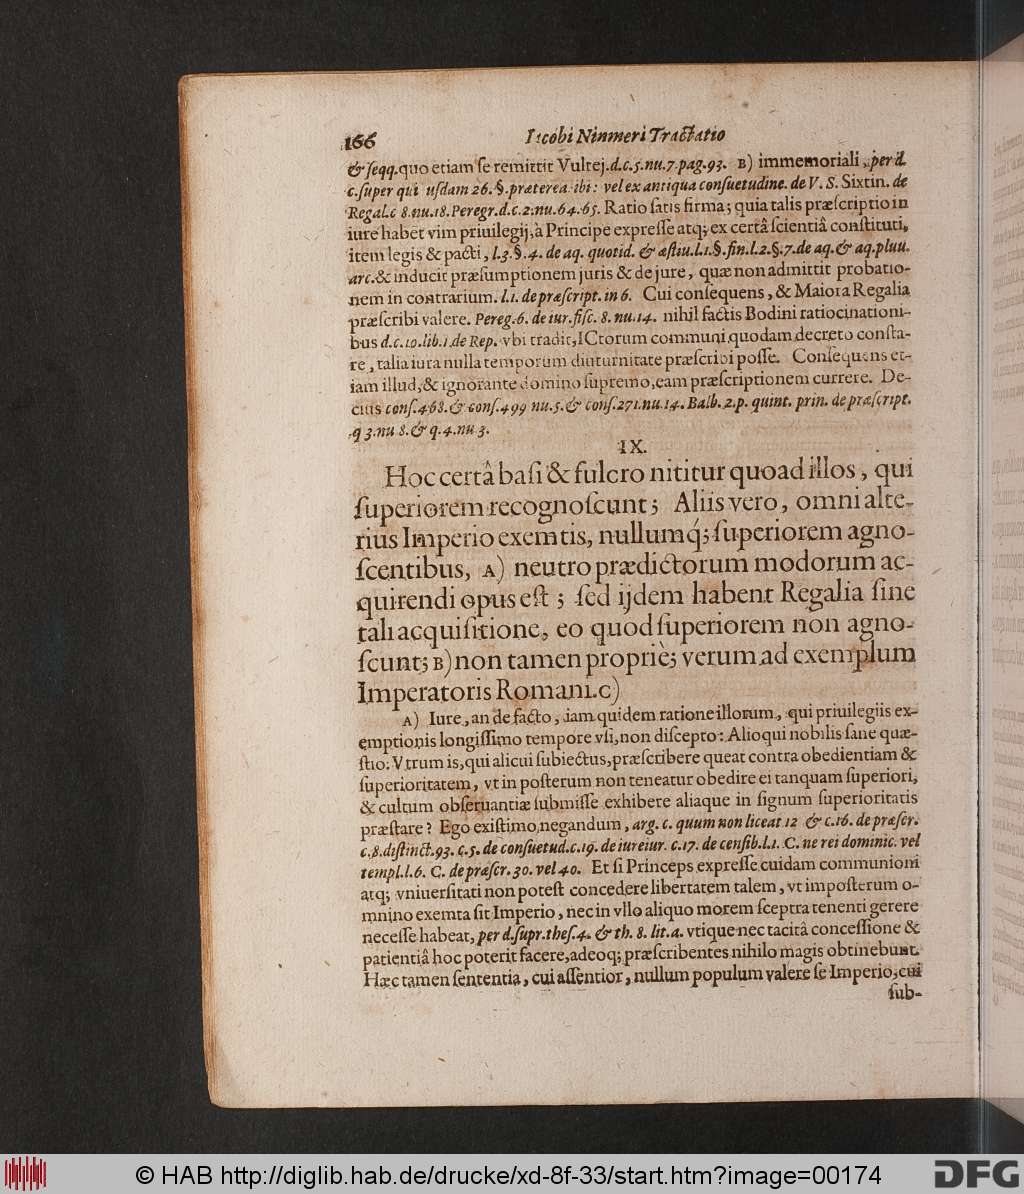 166 Iacobi Ninmeri Tractatio
& ſeqq. quo etiam ſe remittit Vultej. d.c.5.nu.7.pag.93. B) immemoriali, per d.
c. ſuper qui uſdam 26.§. præterea ibi: vel ex antiqua conſuetudine. de V. S. Sixtin. de
Regal.c 8.nu.18. Peregr.d.c.2.nu.64.65. Ratio ſatis firma; quia talis præſcriptio in
iure habet vim priuilegij, à Principe expreſſe atq; ex certâ ſcientiâ conſtituti,
item legis & pacti, l.3.§.4. de aq. quotid. & æſtiu.l.1.§.fin.l.2.§.7.de aq.& aq.pluu.
arc.& inducit præſumptionem juris & de jure, quæ non admittit probatio-
nem in contrarium. l.1. de præſcript. in 6. Cui conſequens, & Maiora Regalia
præſcribi valere. Pereg.6. de iur.fiſc. 8. nu.14. nihil factis Bodini ratiocinationi-
bus d.c.10.lib.1.de Rep. vbi tradit, ICtorum communi quodam decreto conſta-
re, talia iura nulla temporum diuturnitate præſcribi poſſe. Conſequens et-
iam illud, & ignorante domino ſupremo, eam præſcriptionem currere. De-
cius conſ.468.& conſ.499 nu.5.& conſ.271.nu.14. Balb. 2.p. quint. prin. de præſcript.
q 3.nu 8.& q.4.nu 3.
IX.
Hoc certâ baſi & fulcro nititur quoad illos, qui
ſuperiorem recognoſcunt; Aliis vero, omni alte-
rius Imperio exemtis, nullumq́; ſuperiorem agno-
ſcentibus, A) neutro prædictorum modorum ac-
quirendi opus eſt; ſed ijdem habent Regalia ſine
tali acquiſitione, eo quod ſuperiorem non agno-
ſcunt; B) non tamen propriè; verum ad exemplum
Imperatoris Romani. C)
A) Iure, an de facto, iam quidem ratione illorum, qui priuilegiis ex-
emptionis longiſſimo tempore vſi, non diſcepto: Alioqui nobilis ſane quæ-
ſtio: Vtrum is, qui alicui ſubiectus, præſcribere queat contra obedientiam &
ſuperioritatem, vt in poſterum non teneatur obedire ei tanquam ſuperiori,
& cultum obſeruantiæ ſubmiſſe exhibere aliaque in ſignum ſuperioritatis
præſtare? Ego exiſtimo negandum, arg. c. quum non liceat 12 & c.16. de præſcr.
c.8.diſtinct.93. c.5. de conſuetud.c.19. de iureiur. c.17. de cenſib.l.1. C. ne rei dominic. vel
templ.l.6. C. de præſcr. 30. vel 40. Et ſi Princeps expreſſe cuidam communioni
atq; vniuerſitati non poteſt concedere libertatem talem, vt impoſterum o-
mnino exemta ſit Imperio, nec in vllo aliquo morem ſceptra tenenti gerere
neceſſe habeat, per d.ſupr.theſ.4. & th. 8. lit.a. vtique nec tacitâ conceſſione &
patientiâ hoc poterit facere, adeoq; præſcribentes nihilo magis obtinebunt.
Hæc tamen ſententia, cui aſſentior, nullum populum valere ſe Imperio, cui
ſub-
© HAB http://diglib.hab.de/drucke/xd-8f-33/start.htm?image=00174
DFG